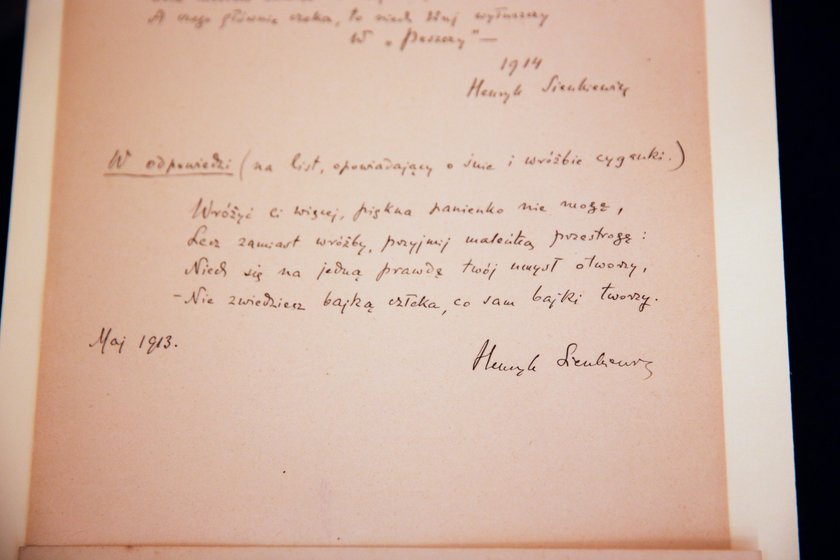 A czego głównie czeka, to niech żnij wytłuszczy
W „Puszczy” —
1914
Henryk Sienkiewicz
W odpowiedzi (na list, opowiadający o śnie i wróżbie cyganki.)
Wróżyć ci więcej, piękna panienko nie mogę,
Lecz zamiast wróżby, przyjmij maleńką przestrogę:
Niech się na jedną prawdę twój umysł otworzy,
– Nie zwiedziesz bajką człeka, co sam bajki tworzy.
Maj 1913.
Henryk Sienkiewicz